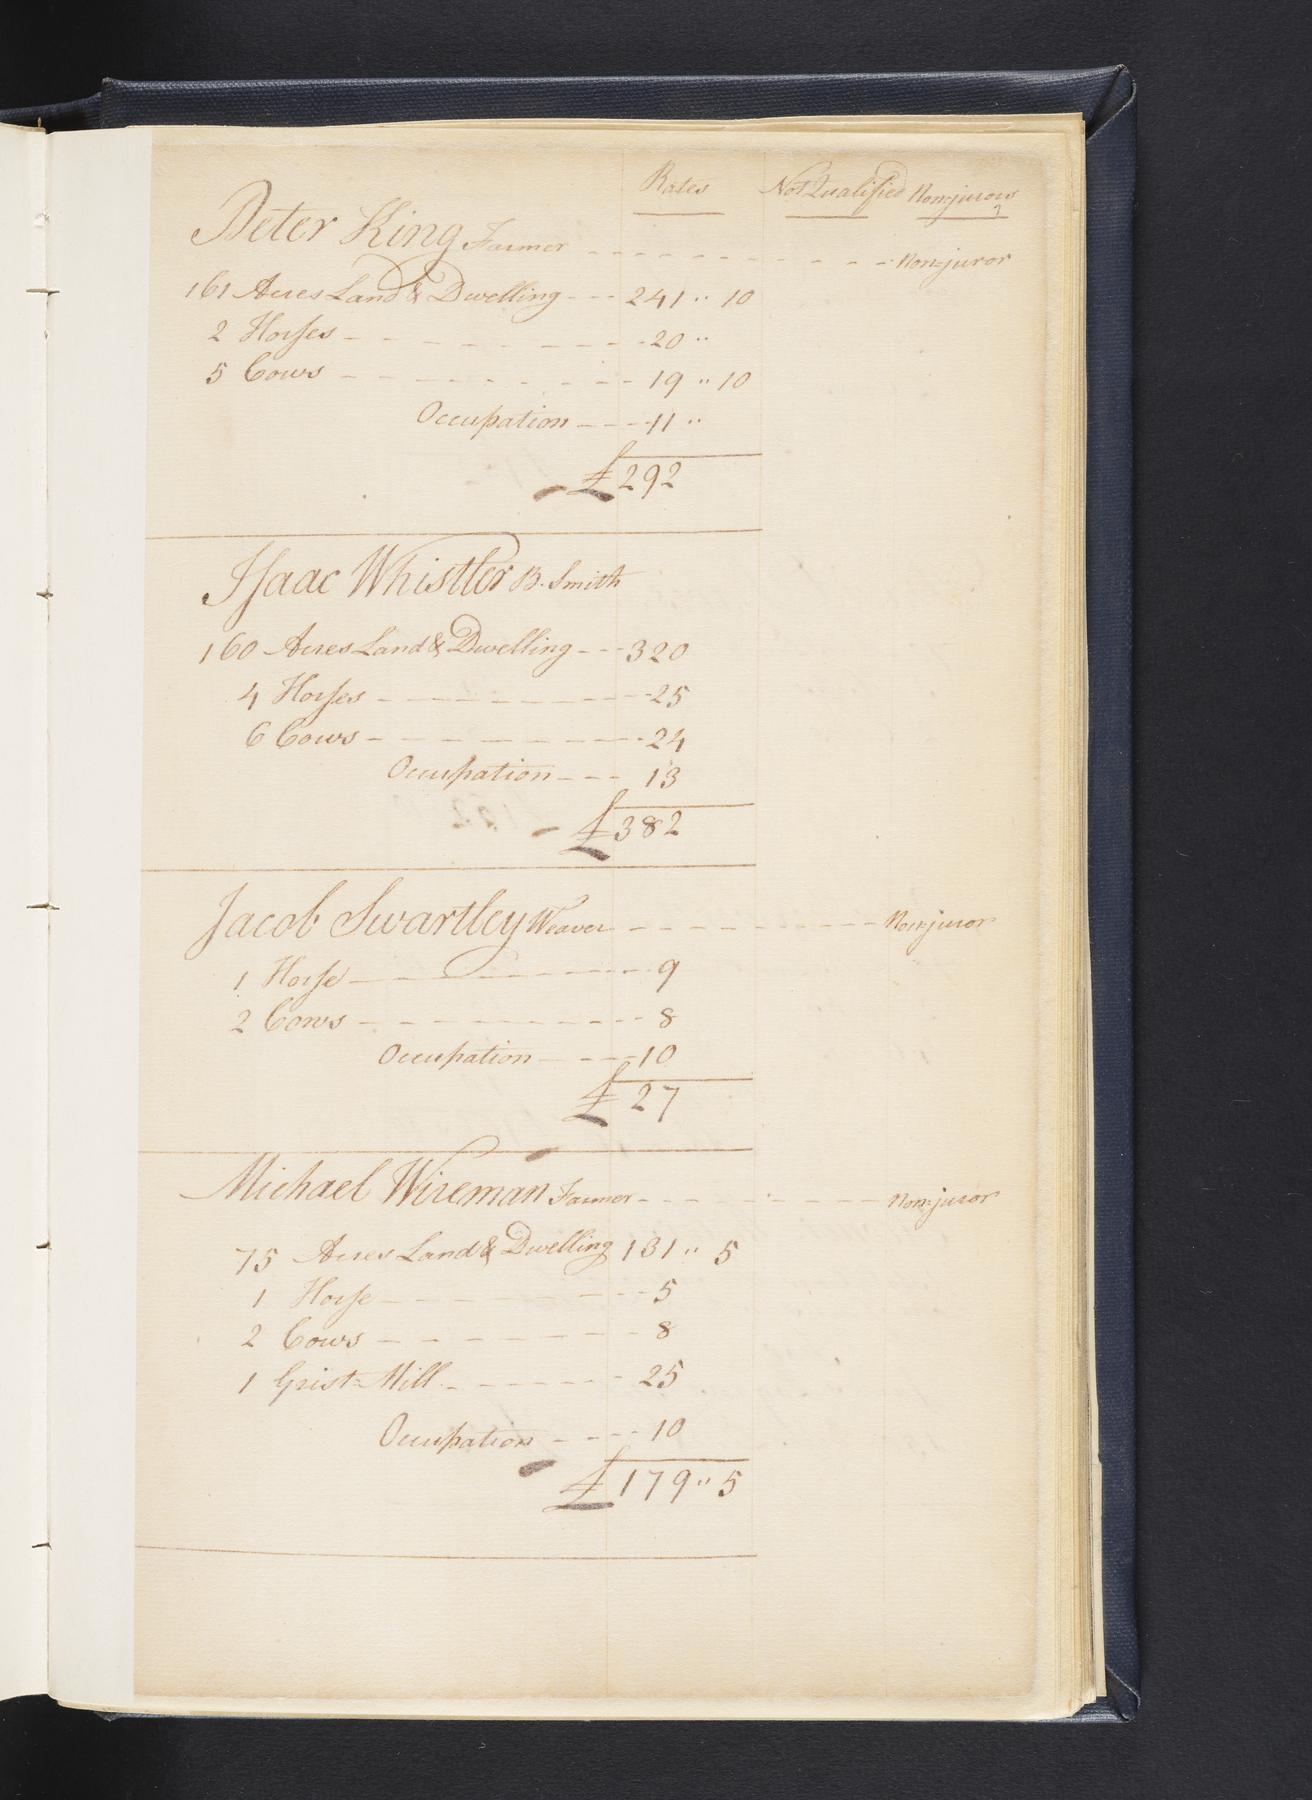 Rates Not Qualified Non=jurors
Peter King Farmer - - - - - - - - - - Non=juror
161 Acres Land & Dwelling - - - 241 " 10
2 Horses - - - - - - - - 20 "
5 Cows - - - - - - - - 19 " 10
Occupation - - - - 11 "
£ 292
Isaac Whistler B. Smith
160 Acres Land & Dwelling - - - 320
4 Horses - - - - - - - - 25
6 Cows - - - - - - - - 24
Occupation - - - 13
£ 382
Jacob Swartley Weaver - - - - - - - - - Non=juror
1 Horse - - - - - - - - 9
2 Cows - - - - - - - - 8
Occupation - - - - 10
£ 27
Michael Wireman Farmer - - - - - - - - - Non=juror
75 Acres Land & Dwelling 131 " 5
1 Horse - - - - - - - - 5
2 Cows - - - - - - - - 8
1 Grist=Mill - - - - - - - 25
Occupation - - - - 10
£ 179 " 5